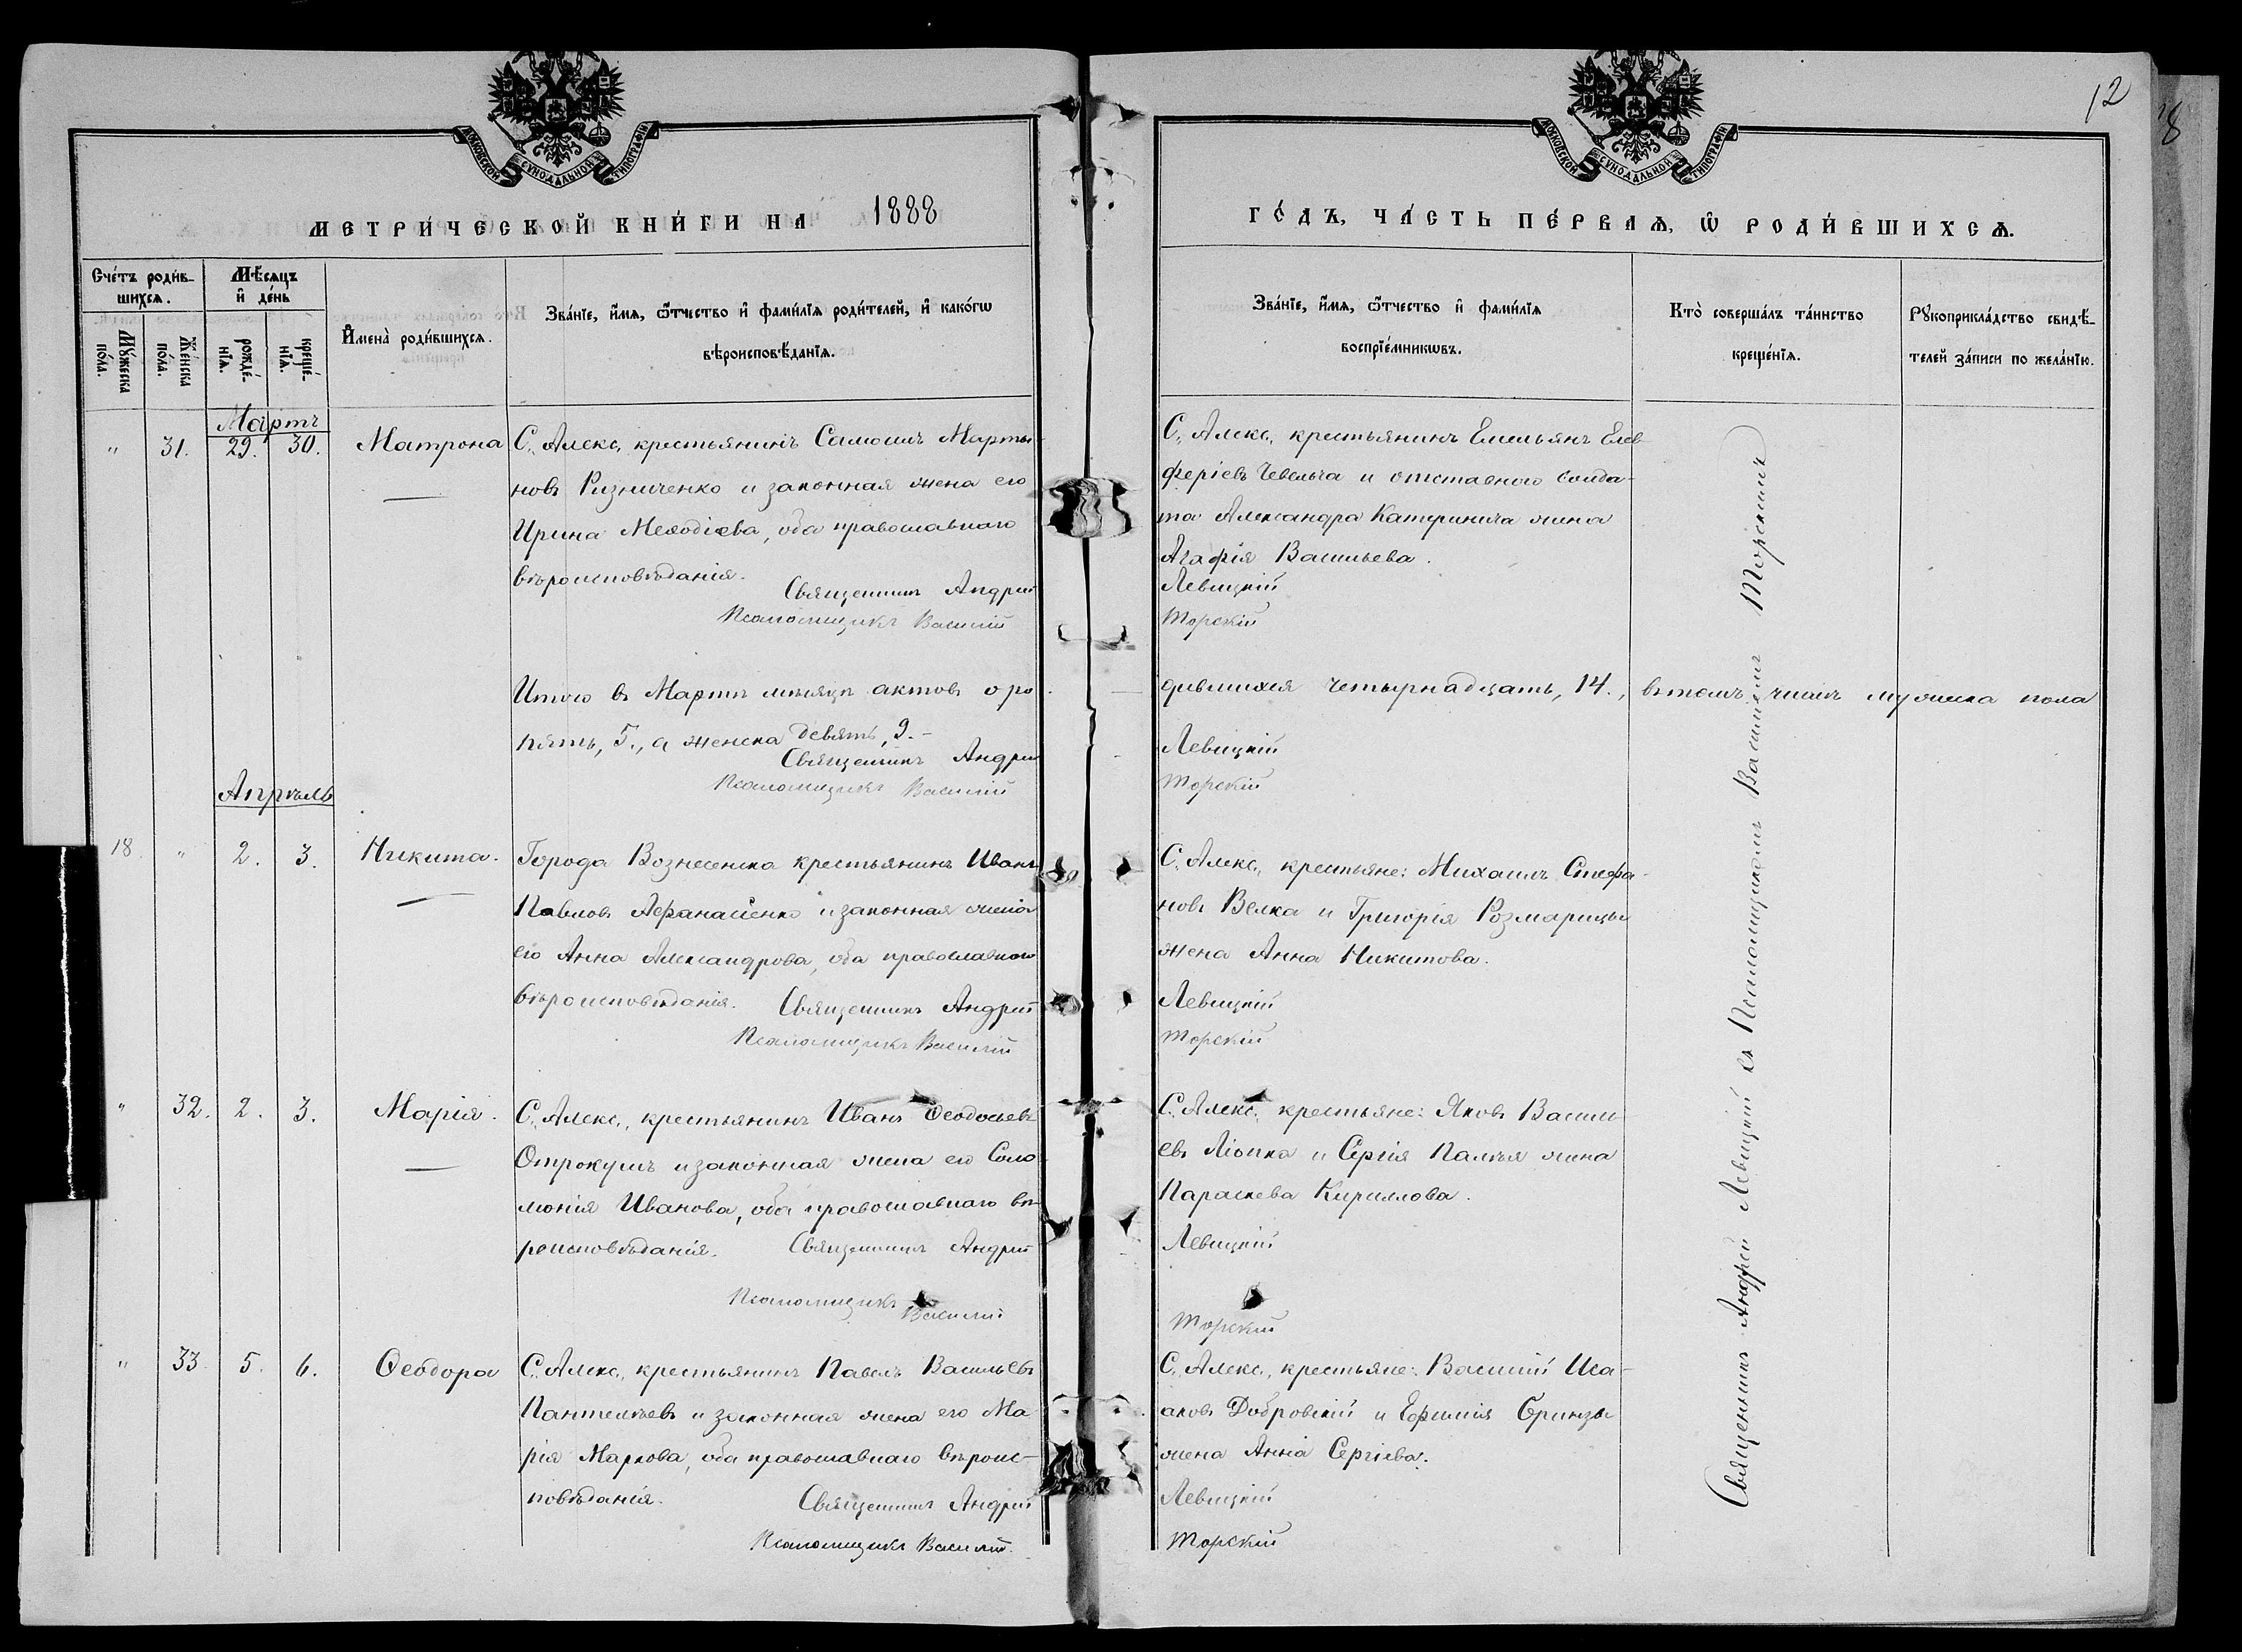 12
8
МОСКОВСКОЙ СУНОДАЛЬНОЙ ТИПОГРАФІИ
МОСКОВСКОЙ СУНОДАЛЬНОЙ ТИПОГРАФІИ
МЕТРИ́ЧЕСКОЙ КНИ́ГИ НА 1888
ГО́ДЪ, ЧА́СТЬ ПЕ́РВАѦ, Ѡ҆ РОДИ́ВШИХСѦ.
Сче́тъ роди́в-
шихсѧ.
Мꙋ́жеска по́ла.
Же́нска по́ла.
Мѣ́сѧцъ
и҆ де́нь
рожде́-
нїѧ.
креще́-
нїѧ.
И҆мена̀ роди́вшихсѧ.
Зва́нїе, и҆́мѧ, ѻ҆́тчество и҆ фами́лїѧ роди́телей, и҆ како́гѡ
вѣроисповѣ́данїѧ.
Зва́нїе, и҆́мѧ, ѻ҆́тчество и҆ фами́лїѧ
воспрїе́мникѡвъ.
Кто̀ соверша́лъ та́инство
креще́нїѧ.
Рꙋкоприкла́дство свидѣ́-
телей за́писи по жела́нїю.
Мартъ
" 31. 29. 30. Матрона
С. Алекс., крестьянинъ Самоилъ Марты-
новъ Ризниченко и законная жена его
Ирина Меѳодіева, оба православнаго
вѣроисповѣданія.
Священникъ Андрей
Псаломщикъ Василій
С. Алекс., крестьянинъ Емельянъ Елев-
феріевъ Чевельча и отставного солда-
та Александра Катеринича жена
Агафія Васильева.
Левицкій
Торскій
Итого въ Мартѣ мѣсяцѣ актовъ о ро-
дившихся четырнадцать, 14., въ томъ числѣ мужеска пола
пять, 5., а женска девять, 9.-
Священникъ Андрей
Левицкій
Псаломщикъ Василій
Торскій
Апрѣль
18. " 2. 3. Никита.
Города Вознесенска крестьянинъ Иванъ
Павловъ Афанасіенко и законная жена
его Анна Александрова, оба православнаго
вѣроисповѣданія. Священникъ Андрей
Псаломщикъ Василій
С. Алекс., крестьяне: Михаилъ Стефа-
новъ Велка и Григорія Розмарицы
жена Анна Никитова.
Левицкій
Торскій
" 32. 2. 3. Марія.
С. Алекс., крестьянинъ Иванъ Ѳеодосьевъ
Отрокушъ и законная жена его Соло-
монія Иванова, оба православнаго вѣ-
роисповѣданія. Священникъ Андрей
Псаломщикъ Василій
С. Алекс., крестьяне: Яковъ Василь-
евъ Ліопка и Сергія Палія жена
Параскева Кириллова.
Левицкій
Торскій
" 33. 5. 6. Ѳеодора
С. Алекс., крестьянинъ Павелъ Васильевъ
Пантелѣевъ и законная жена его Ма-
рія Маркова, оба православнаго вѣроис-
повѣданія.
Священникъ Андрей
Псаломщикъ Василій.
С. Алекс., крестьяне: Василій Иса-
аковъ Добровскій и Ефимія Бринзы
жена Анна Сергіева.
Левицкій
Торскій
Священникъ Андрей Левицкій съ Псаломщикомъ Василіемъ Торскимъ